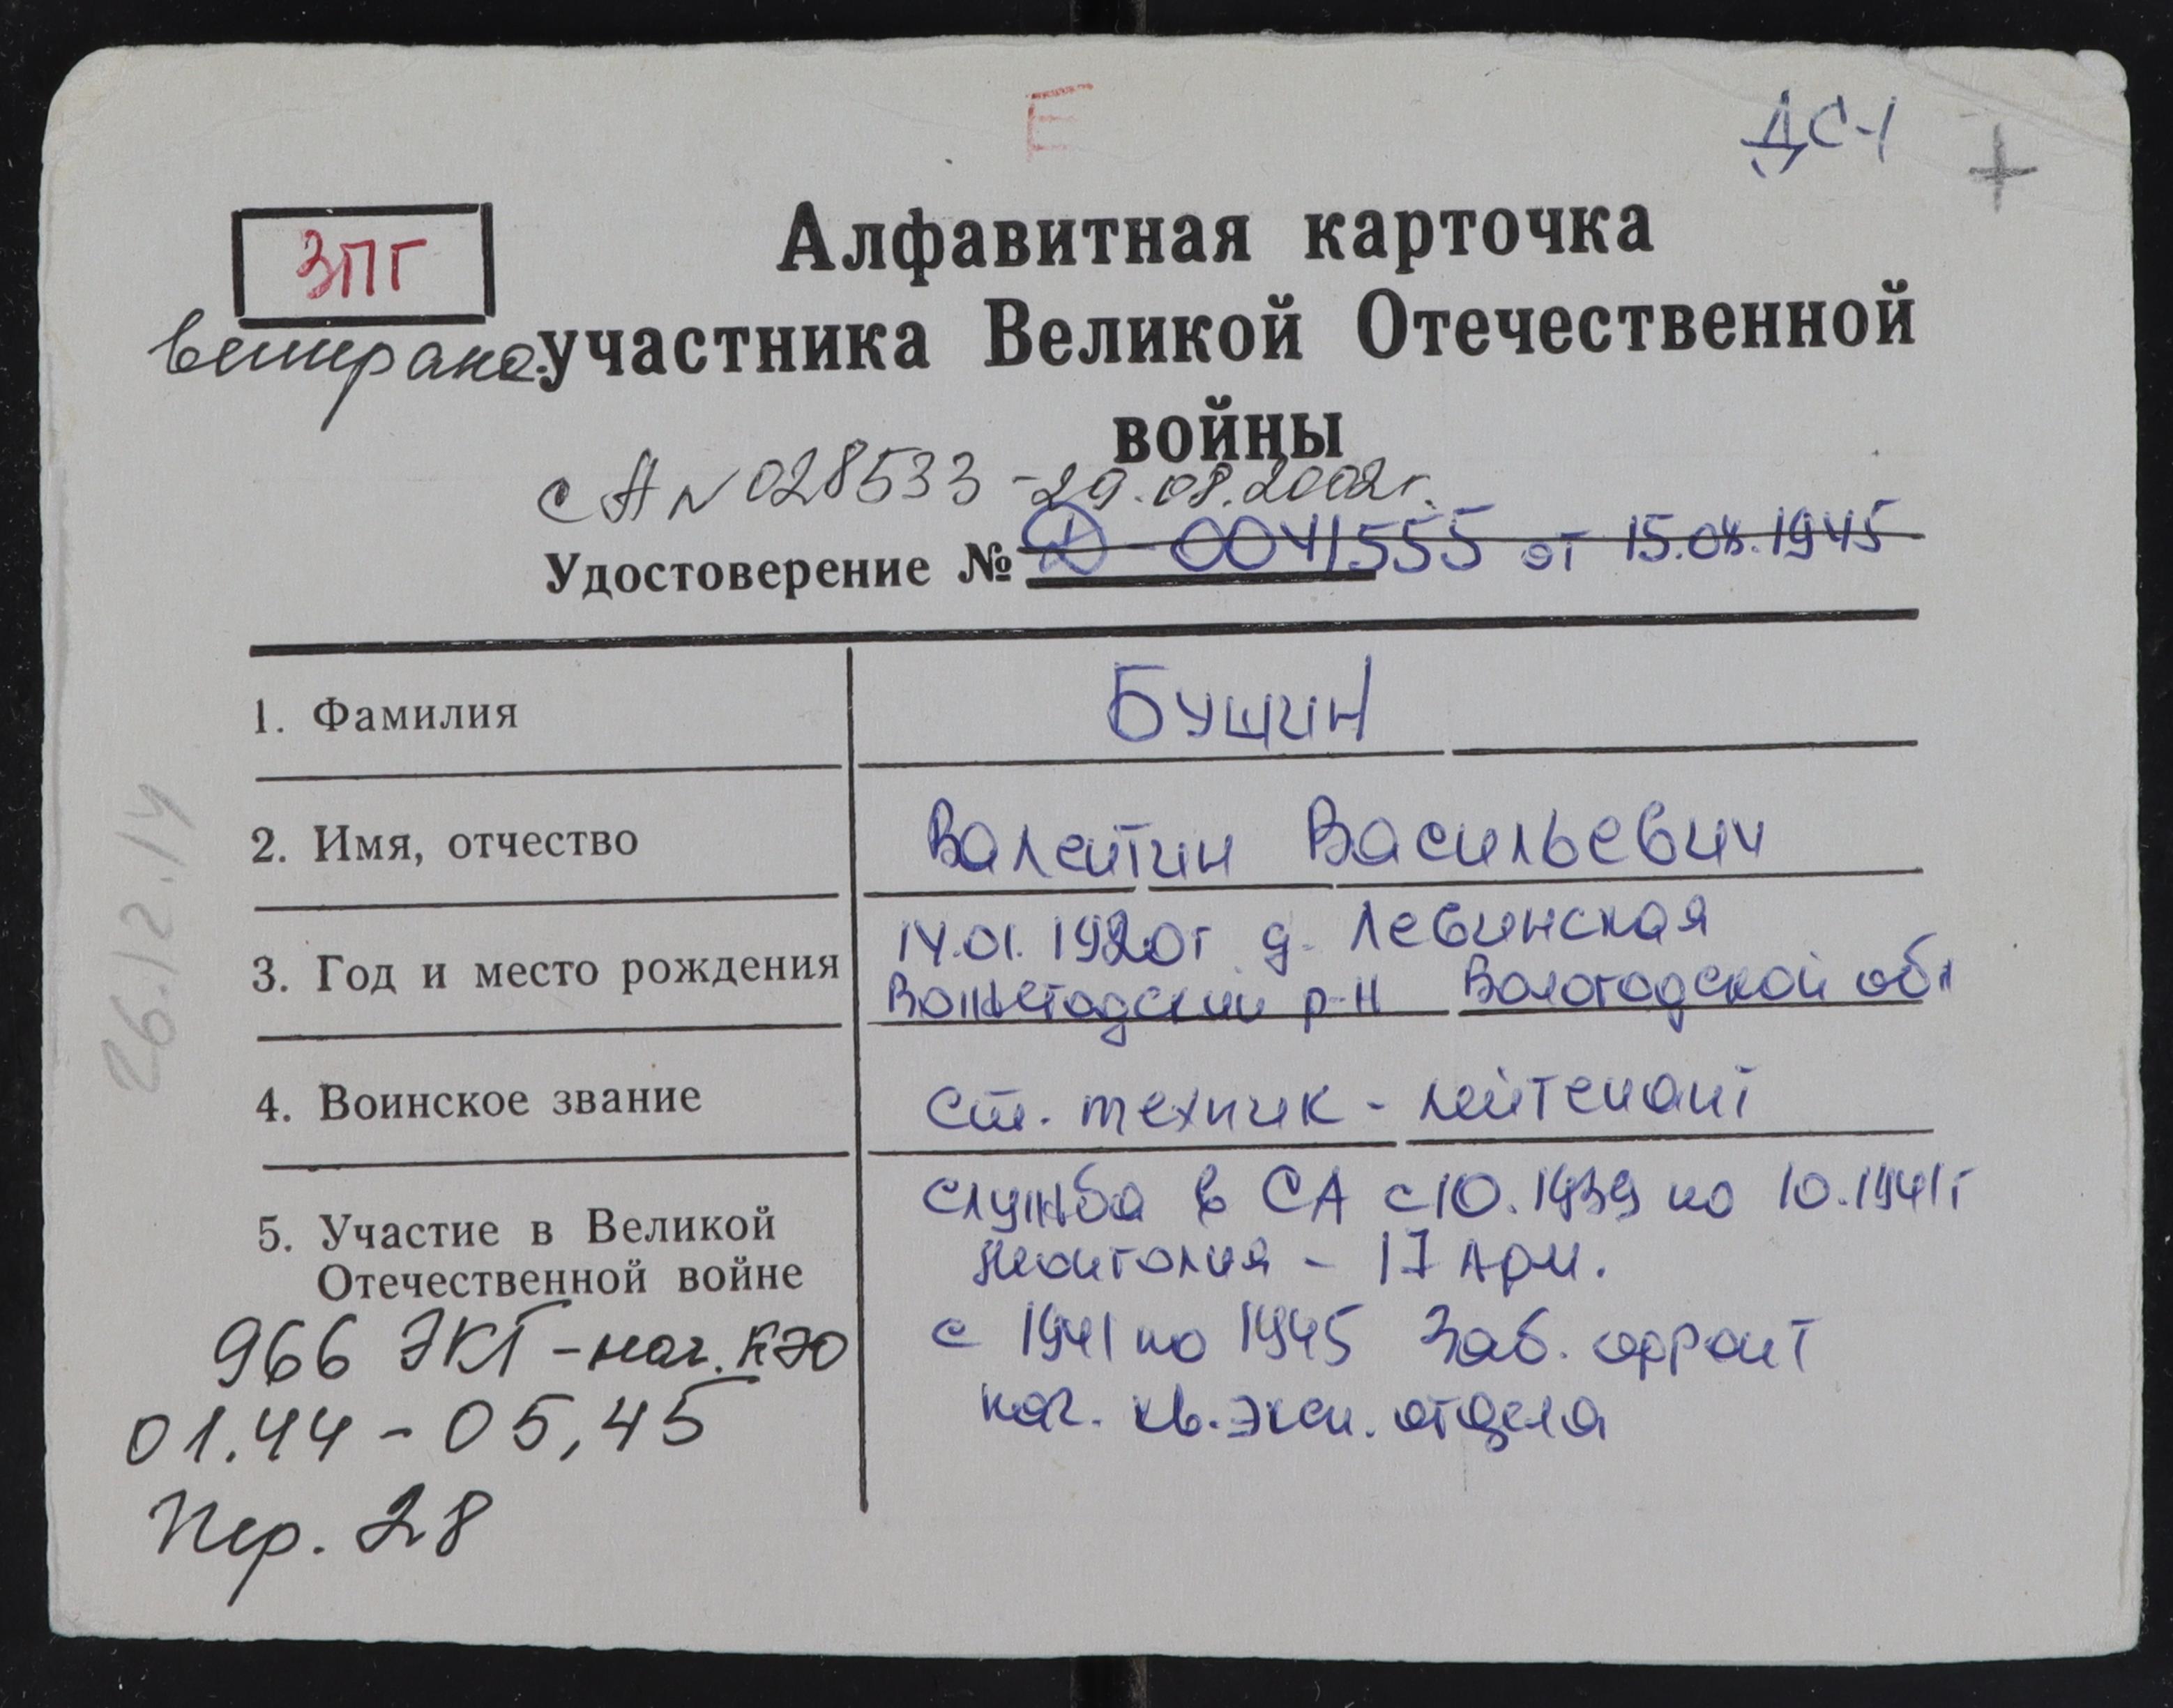 Е
ДС-1
+
ЗПГ
Алфавитная карточка
ветерана участника Великой Отечественной
войны
СА № 028533 - 29.08.2002г.
Удостоверение № Д - 0041555 от 15.08.1945
1. Фамилия Бушин
2. Имя, отчество Валентин Васильевич
3. Год и место рождения 14.01.1920г д. Левинская
Вожегодский р-н Вологодской обл
4. Воинское звание ст. техник - лейтенант
5. Участие в Великой Отечественной войне
служба в СА с 10.1939 по 10.1941г
Монголия - 17 Арм.
с 1941 по 1945 Заб. фронт
нач. кв. эксп. отдела
966 ЭКГ - нач. КЭО
01.44 - 05.45
Пер. 28
26.12.14